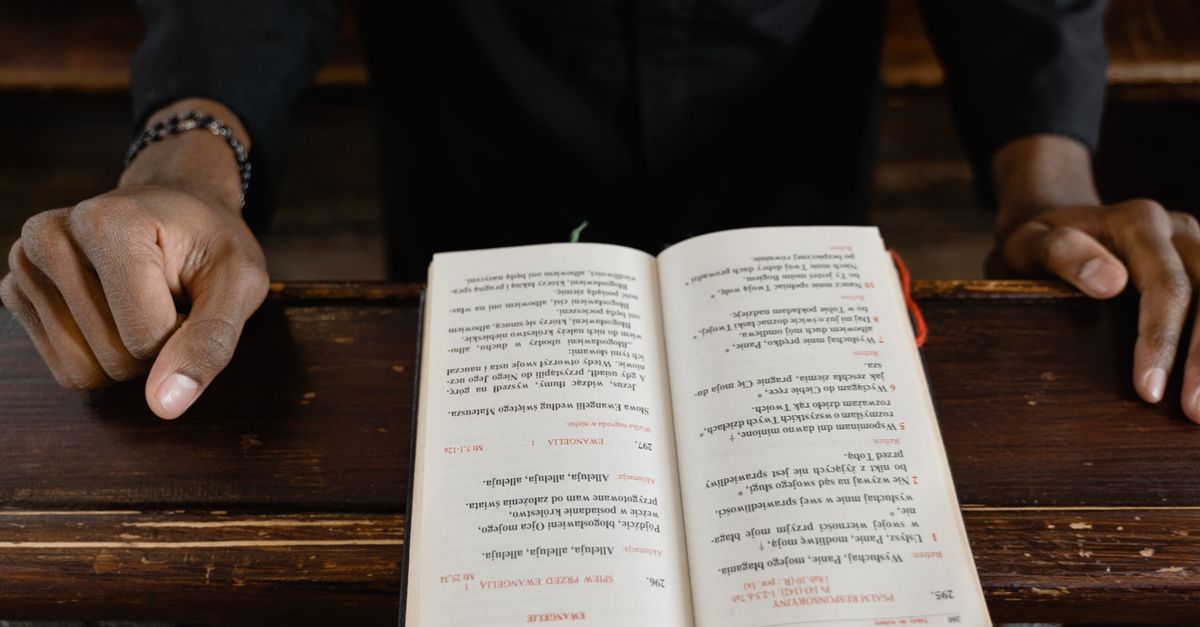 260 Teksty do wyboru
295. PSALM RESPONSORYJNY
Ps 143 (142), 1-2.5.6.7ab
i 8ab.10 (R.: por. 1a)
Refren: Wysłuchaj, Panie, mojego błagania.
1 Usłysz, Panie, modlitwę moją, †
w swojej wierności przyjm moje błaga-
nie, *
wysłuchaj mnie w swej sprawiedliwości.
2 Nie wzywaj na sąd swojego sługi, *
bo nikt z żyjących nie jest sprawiedliwy
przed Tobą.
Refren.
5 Wspominam dni dawno minione, †
rozmyślam o wszystkich Twych dziełach, *
rozważam dzieło rąk Twoich.
6 Wyciągam do Ciebie ręce, *
jak zeschła ziemia, pragnie Cię moja du-
sza.
Refren.
7 Wysłuchaj mnie prędko, Panie, *
albowiem duch mój omdlewa.
8 Daj mi już o świcie doznać łaski Twojej, *
bo w Tobie pokładam nadzieję.
Refren.
10 Naucz mnie spełniać Twoją wolę, *
bo Ty jesteś moim Bogiem.
Niech mnie Twój dobry duch prowadzi *
po bezpiecznej równinie.
Refren.
EWANGELIE
296. ŚPIEW PRZED EWANGELIĄ 1
Mt 25,34
Aklamacja: Alleluja, alleluja, alleluja.
Pójdźcie, błogosławieni Ojca mojego,
weźcie w posiadanie królestwo,
przygotowane wam od założenia świata.
Aklamacja: Alleluja, alleluja, alleluja.
297. EWANGELIA 1 Mt 5,1-12a
Wielka nagroda w niebie.
Słowa Ewangelii według świętego Mateusza.
Jezus, widząc tłumy, wyszedł na górę.
A gdy usiadł, przystąpili do Niego Jego ucz-
niowie. Wtedy otworzył swoje usta i nauczał
ich tymi słowami:
„Błogosławieni ubodzy w duchu, albo-
wiem do nich należy królestwo niebieskie.
Błogosławieni, którzy się smucą, albowiem
oni będą pocieszeni.
Błogosławieni cisi, albowiem oni na włas-
ność posiądą ziemię.
Błogosławieni, którzy łakną i pragną spra-
wiedliwości, albowiem oni będą nasyceni.